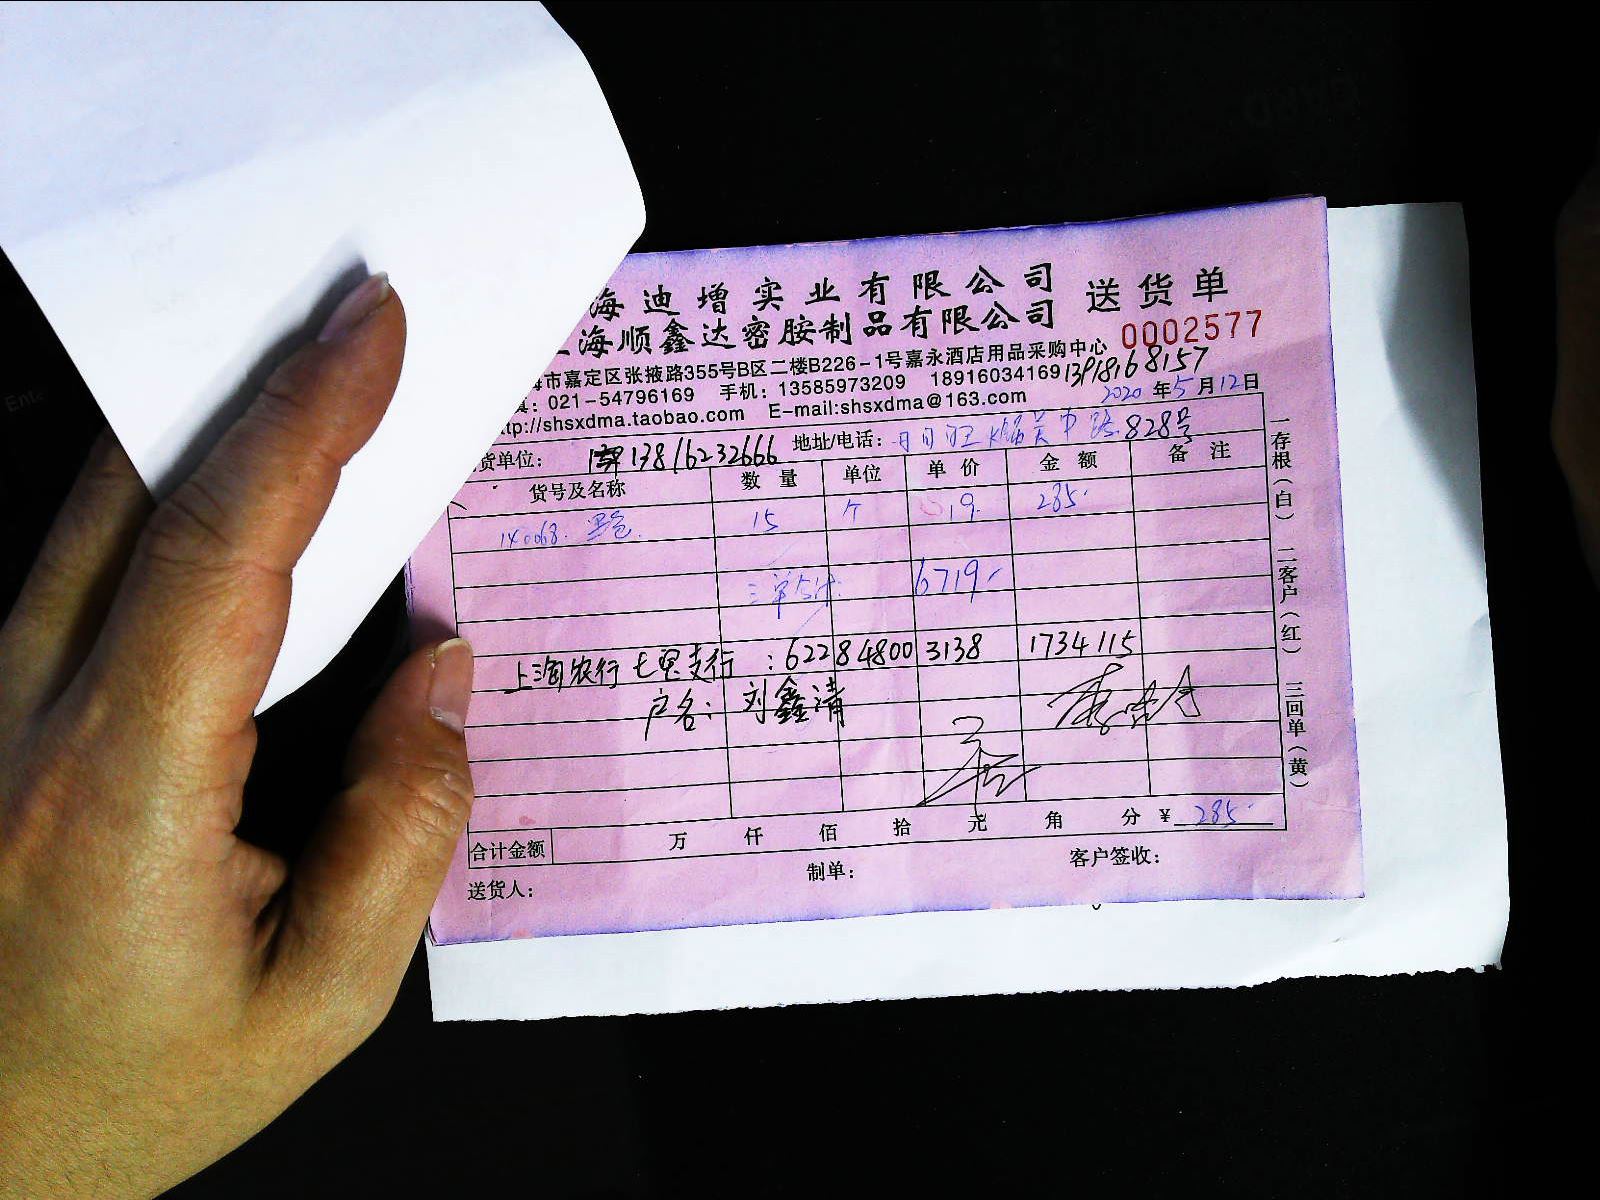 海迪增实业有限公司 送货单
海顺鑫达密胺制品有限公司 0002577
市嘉定区张掖路355号B区二楼B226-1号嘉永酒店用品采购中心
：021-54796169 手机：13585973209 18916034169 13918168157
tp://shsxdma.taobao.com E-mail:shsxdma@163.com 2020年5月12日
货单位： 13816232666 地址/电话： 中路828号
货号及名称 数量 单位 单价 金额 备注
140068. 黑色. 15 个 19. 285.
三单合计 6719.
上海农行七宝支行：6228 4800 3138 1734115
户名：刘鑫清
合计金额 万 仟 佰 拾 元 角 分 ¥ 285.
送货人： 制单： 客户签收：
一存根（白） 二客户（红） 三回单（黄）